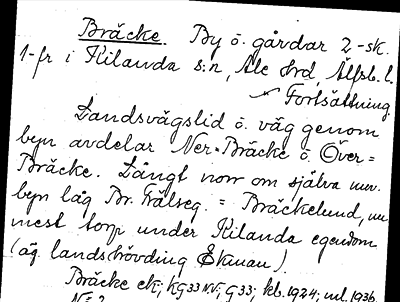 Bräcke. By o. gårdar 2-sk.
1-fr i Kilanda s:n, Ale hrd, Älfsb. l.
Fortsättning
Landsvägslid o. väg genom
byn avdelar Ner-Bräcke o. Över=
Bräcke. Längt norr om själva nuv.
byn låg Br. Frälseg. = Bräckelund, nu
mest torp under Kilanda egendom
(äg. landshövding Ekman).
Bräcke ek, KG33 N.V., G33; kb. 1924; ml. 1936.
N:o 2